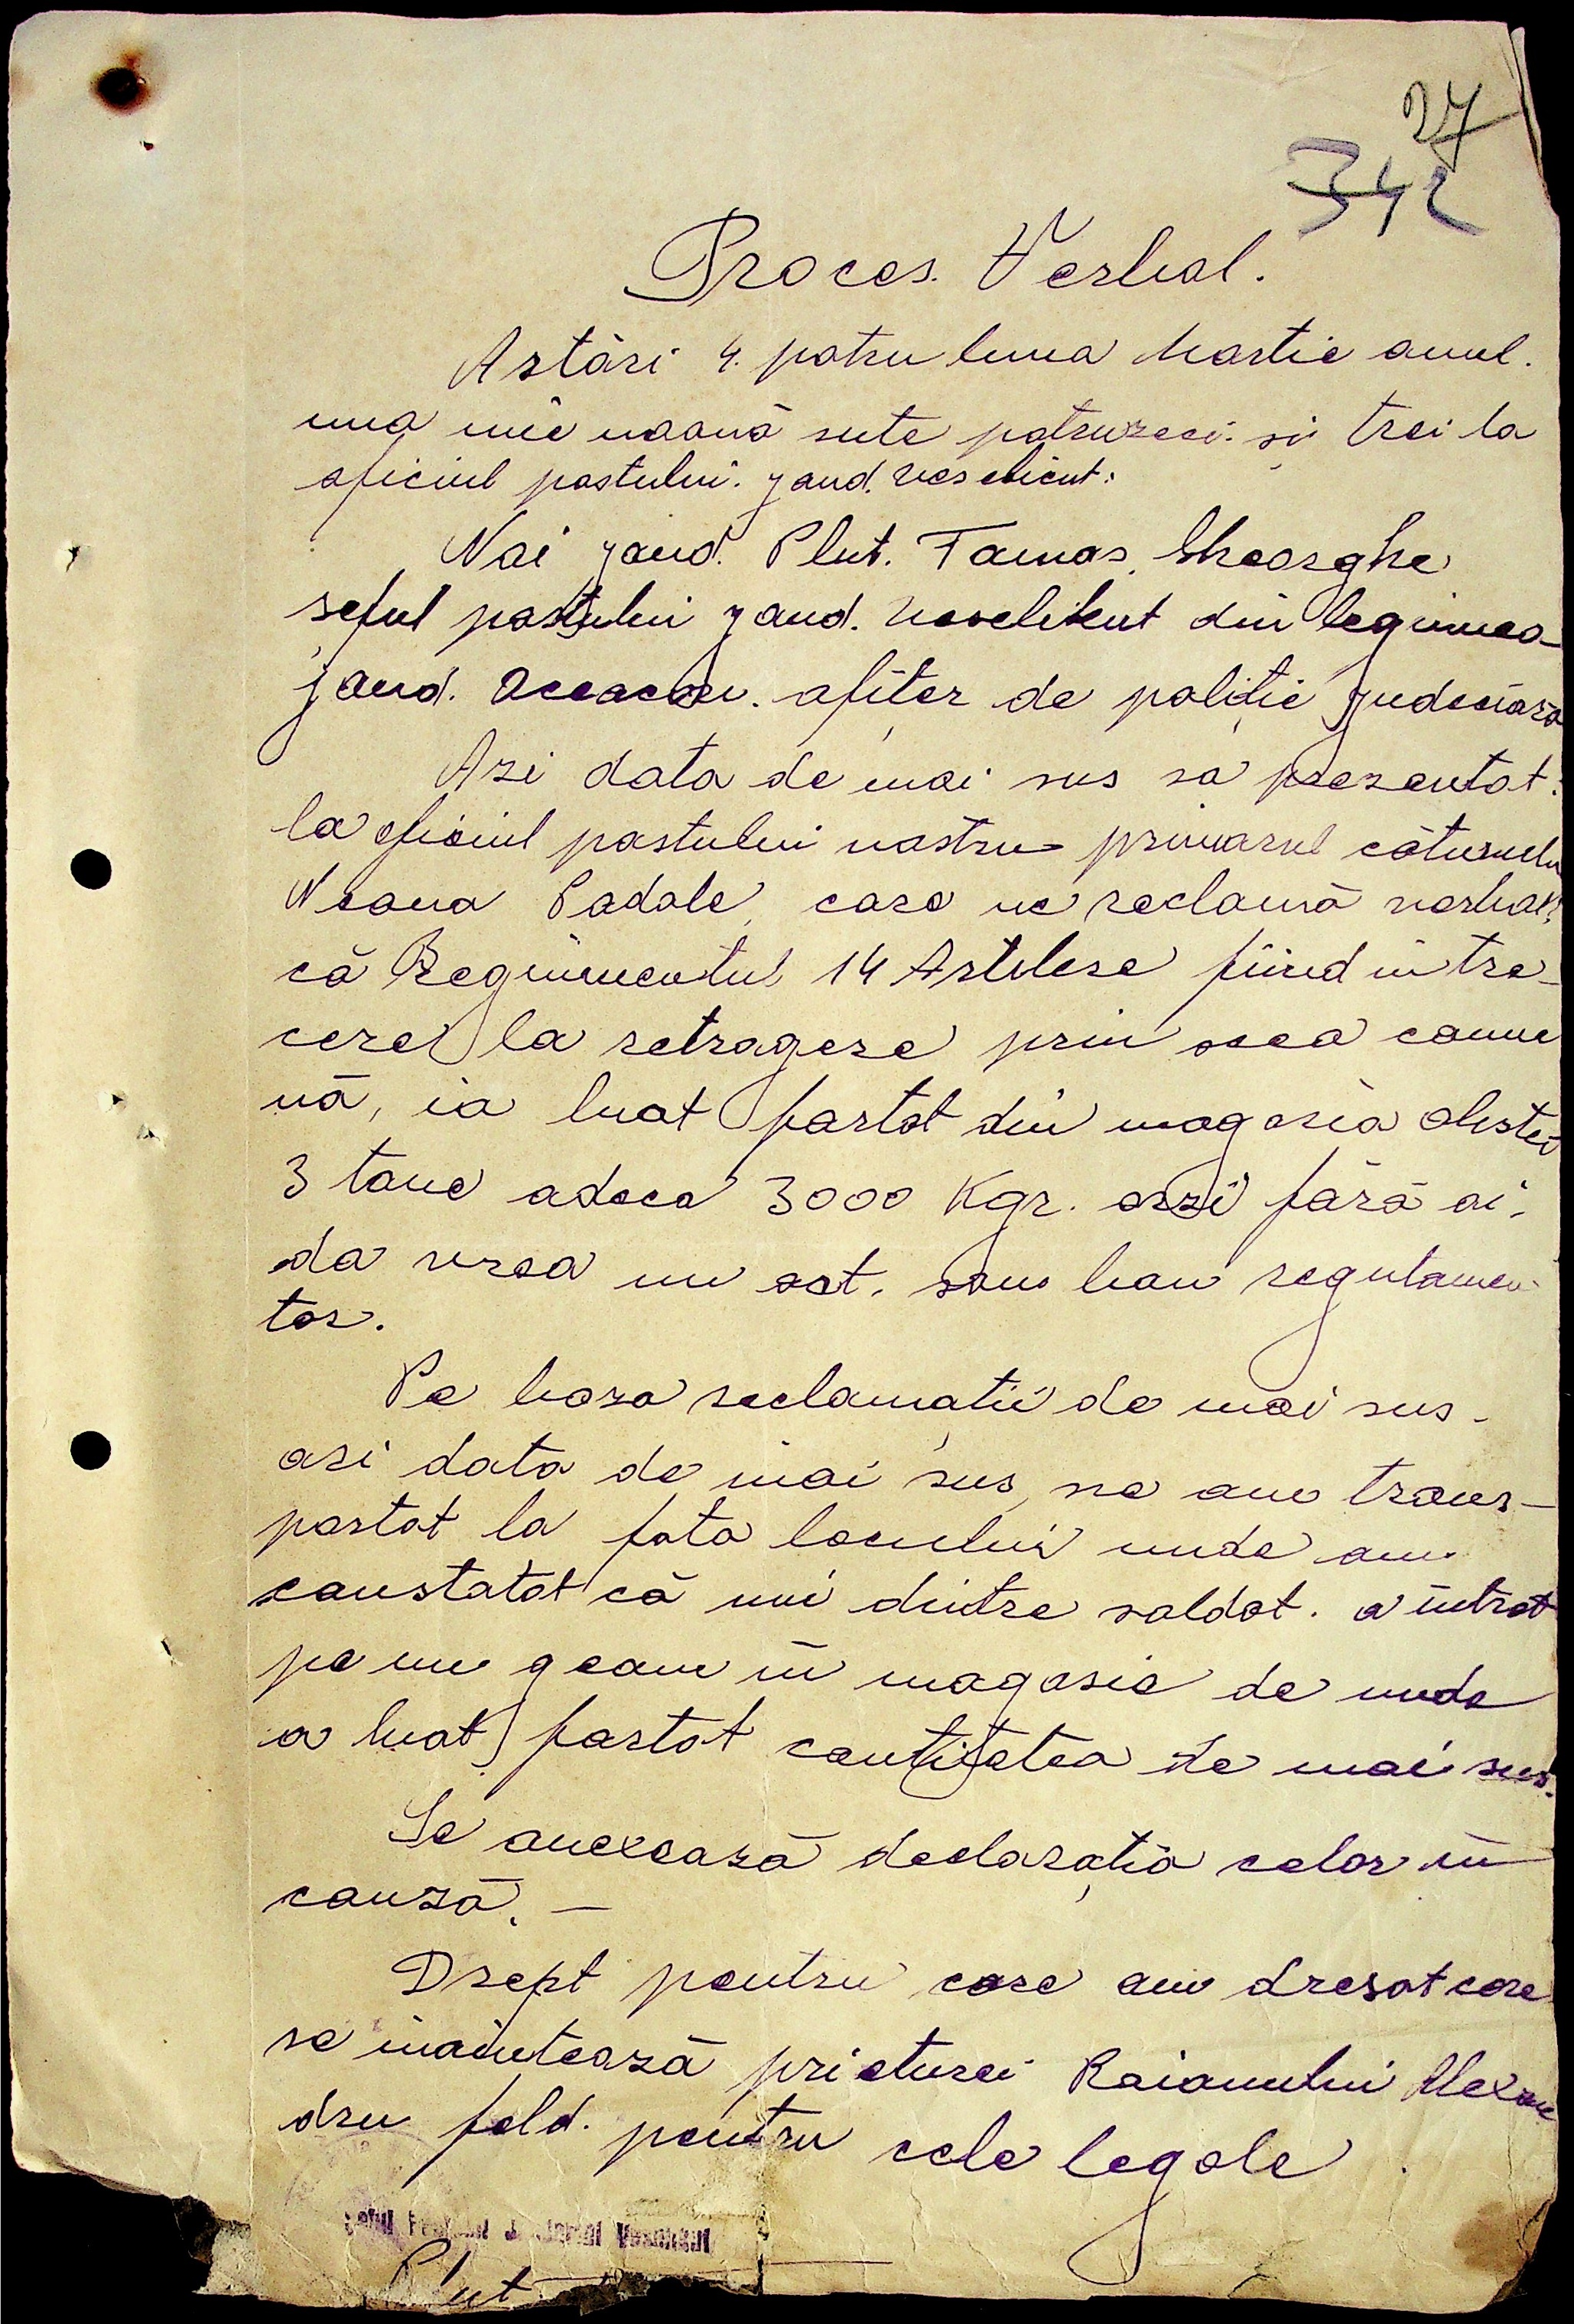 27
342
Proces. Verbal.
Astări 4. patru luna Martie anul.
una mie nouă sute patruzeci. și trei la
oficiul postului. jand. Veselicut:
Noi jand. Plut. Tamas. Gheorghe
seful postului jand. Veselikut din legiunea
jand. Oceacov. ofițer de poliție judeciara
Azi data de mai sus sa prezentat:
la oficiul postului nostru primarul cătunulu
Neaua Padale, care ne reclamă verbal
că Regimentul 14 Artilere fiind in tre-
cere la retragere prin acea comu
nă, ia luat fortat din magazia obstei
3 tone adeca 3000 Kgr. orzi fără ai.
da vrea un act. sau bau regulamen
tar.
Pe baza reclamatii de mai sus -
azi data de mai sus, ne am trans-
portat la fata locului unde am
constatat că uni dintre soldat. a intrat
pe un geam in magazie de unde
a luat fortat cantitatea de mai sus.
Se anexează declarația celor in
cauză. -
Drept pentru care am dresat care
se inaintează prieturei Raionului Alexan
dru feld. pentru cele legale
Plut